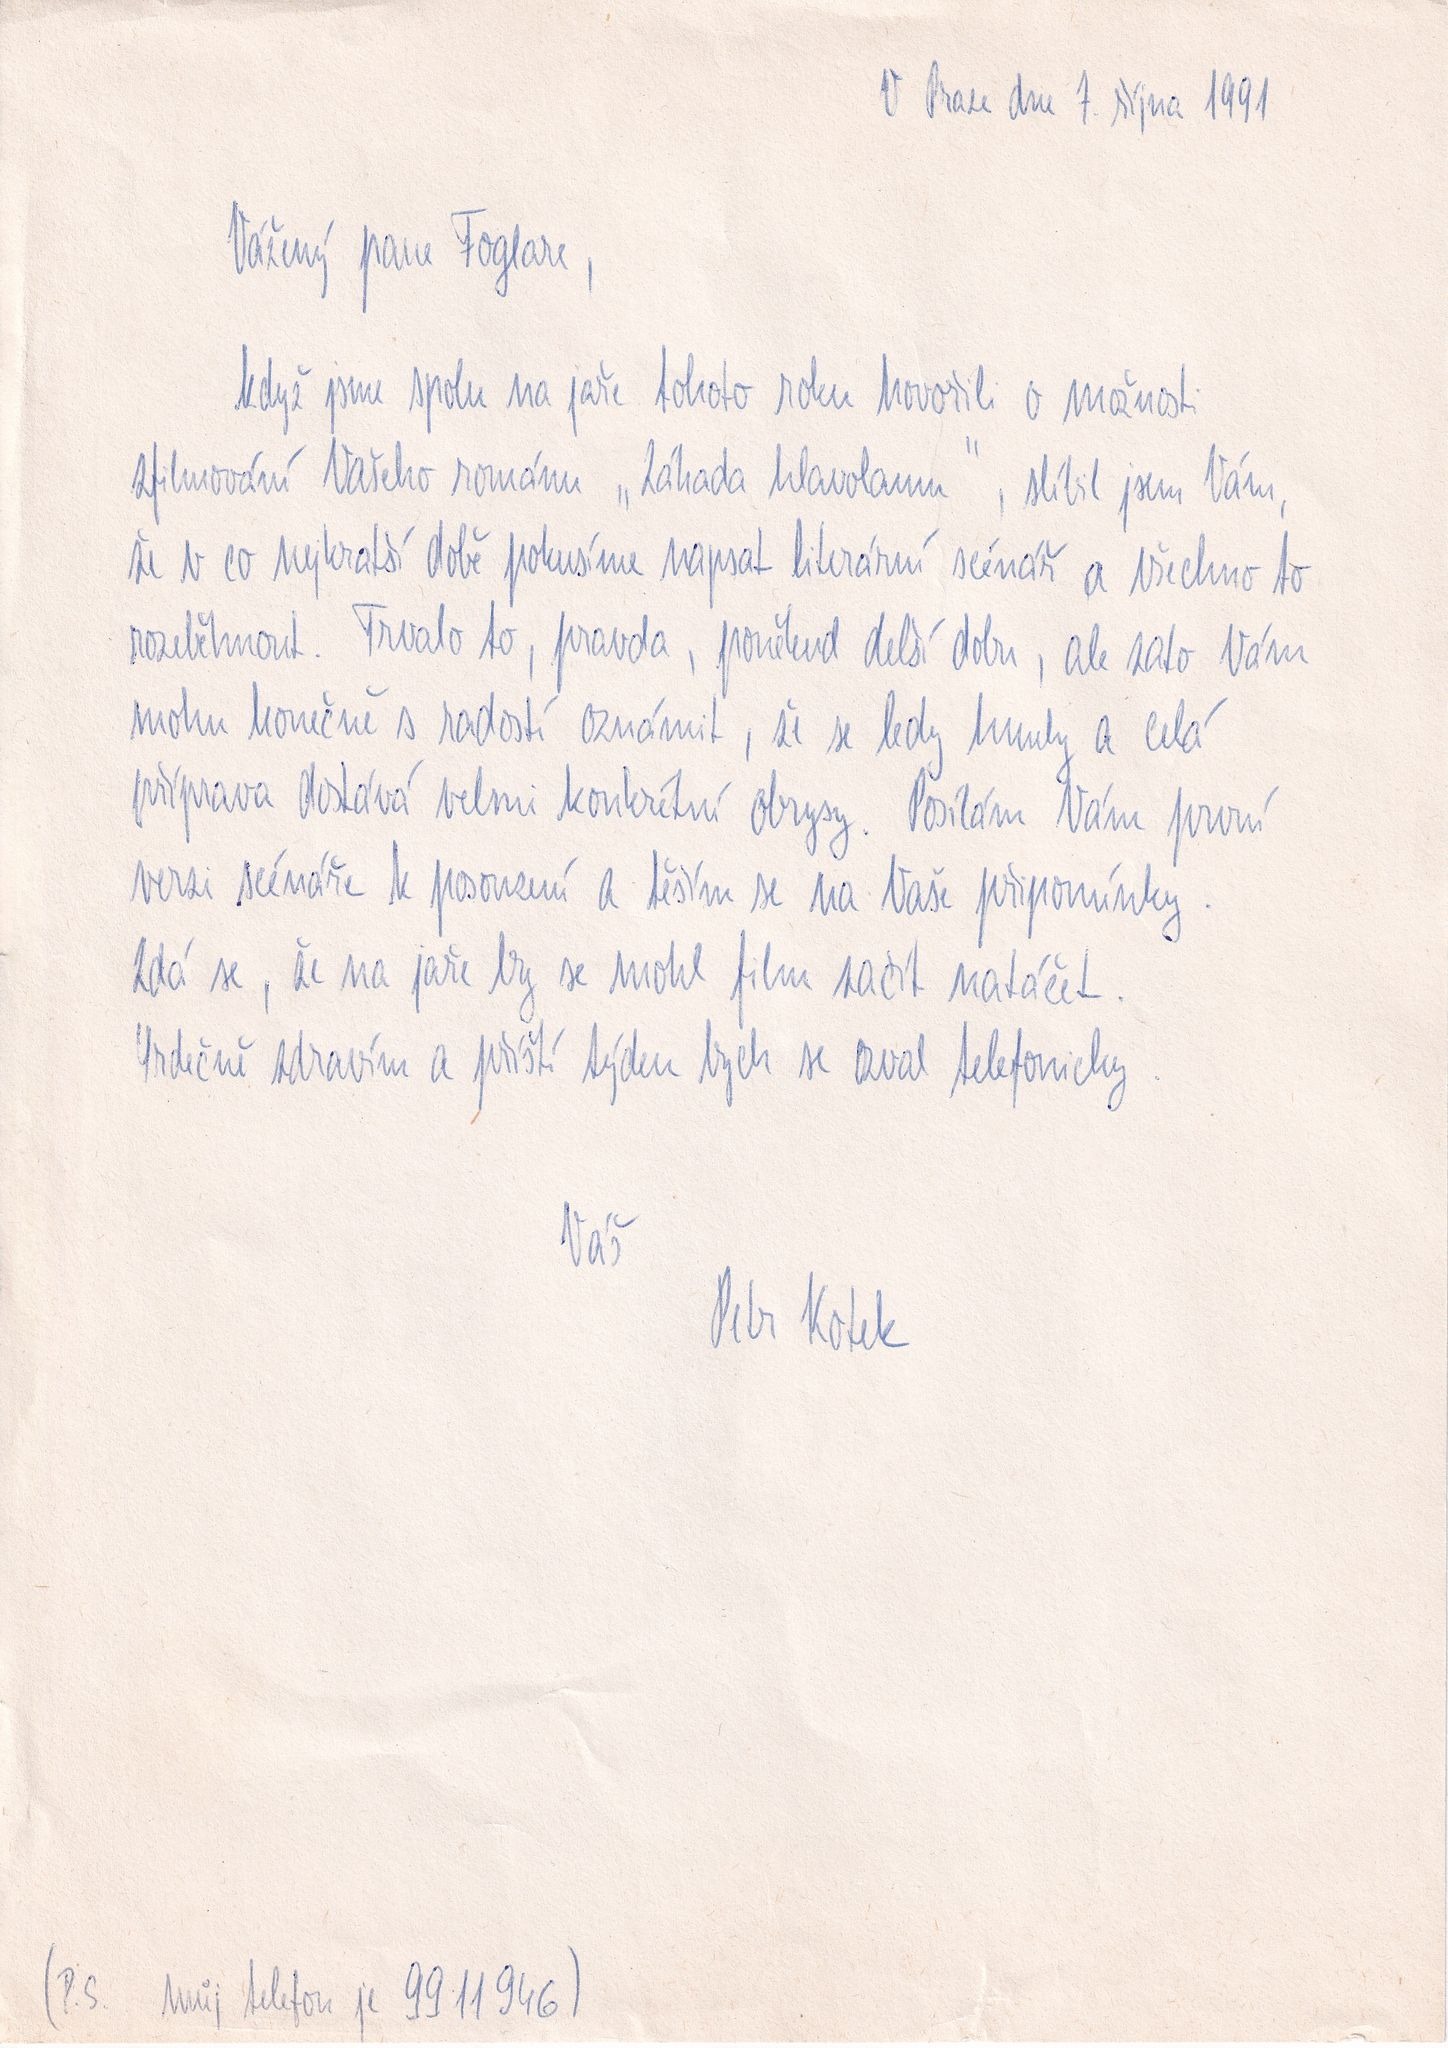 V Praze dne 7. října 1991
Vážený pane Foglare,
když jsme spolu na jaře tohoto roku hovořili o možnosti
zfilmování Vašeho románu „Záhada hlavolamu", slíbil jsem Vám,
že v co nejkratší době pokusíme napsat literární scénář a všechno to
rozeběhnout. Trvalo to, pravda, poněkud delší dobu, ale zato Vám
mohu konečně s radostí oznámit, že se ledy hnuly a celá
příprava dostává velmi konkrétní obrysy. Posílám Vám první
verzi scénáře k posouzení a těším se na Vaše připomínky.
Zdá se, že na jaře by se mohl film začít natáčet.
Srdečně zdravím a příští týden bych se ozval telefonicky.
Váš
Petr Kotek
(P.S. můj telefon je 99 11 946)